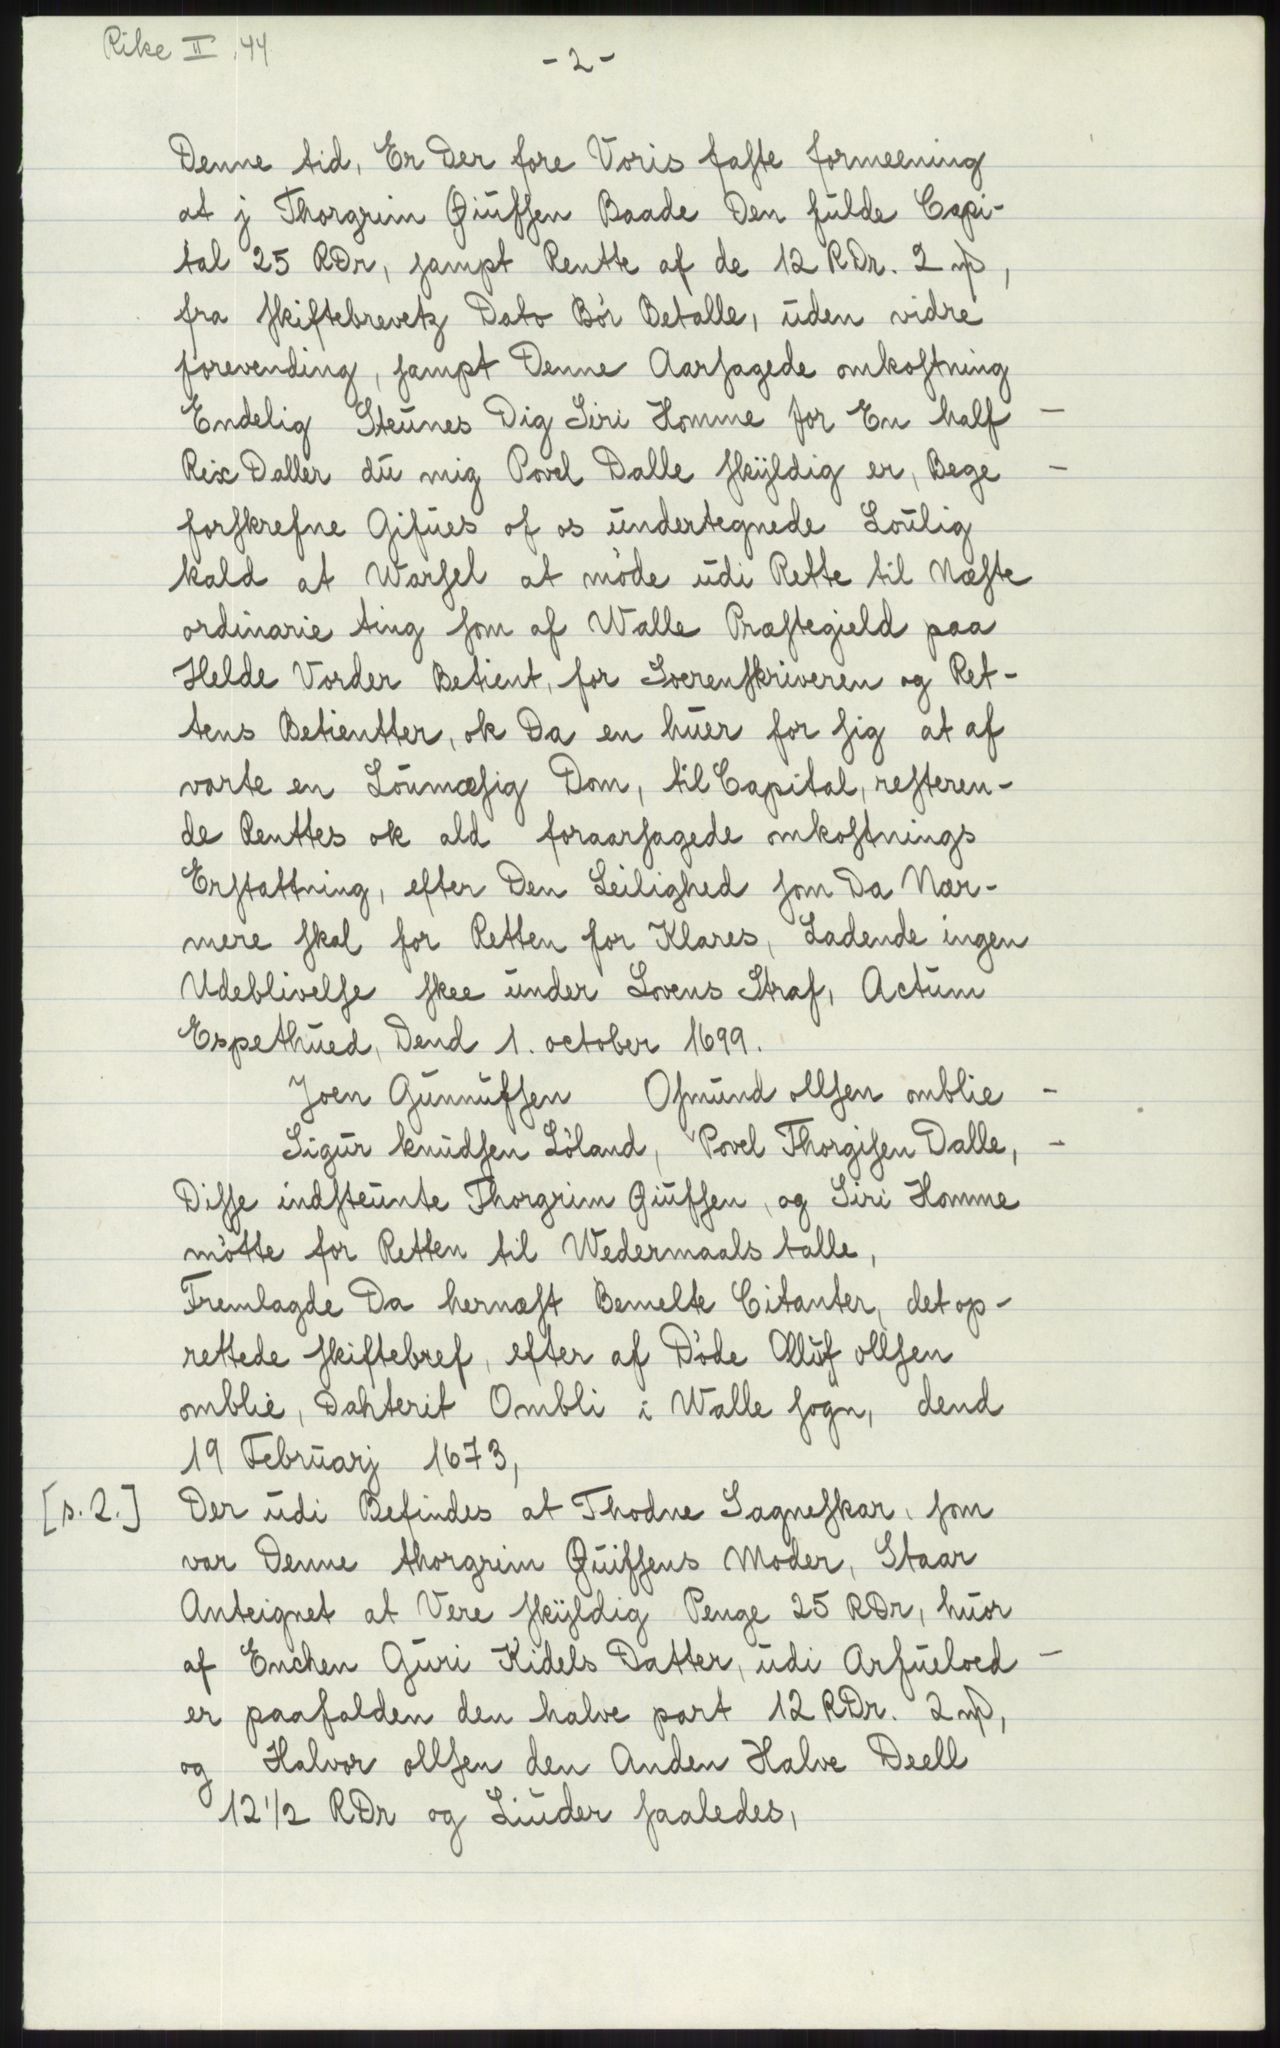 Rike II, 44
- 2 -
Denne tid, Er Der fore Voris faste formeening
at j Thorgrim Giufsen Baade Den fulde Capi-
tal 25 RDr, sampt Rentte af de 12 RDr. 2 mþ,
fra skiftebrevetz Dato Bör Betalle, uden vidre
forevending, sampt Denne Aarsagede omkostning
Endelig Steunes Dig Siri Homme for En half –
Rix Daller du mig Povel Dalle skÿldig er, Bege –
forskrefne Gifues of os undertegnede Loulig
kald at Warsel at möde udi Rette til Næste
ordinarie ting som af Walle Præstegield paa
Helde Vorder Betient, for Soerenskriveren og Ret-
tens Betientter, ok Da en huer for sig at af
varte en Loumæsig Dom, til Capital, resteren-
de Renttes ok ald foraarsagede omkostnings
Erstattning, efter Den Leilighed som Da Nær-
mere skal for Retten for Klares, Ladende ingen
Udeblivelse skee under Lovens Straf, Actum
Espethued, Dend 1. october 1699.
Joen Gunnufsen Osmund ollsen omblie –
Sigur knudsen Löland, Povel Thorgisen Dalle, –
Disse indsteunte Thorgrim Giufsen, og Siri Homme
mötte for Retten til Wedermaals talle,
Fremlagde Da hernæst Bemelte Citanter, det op-
rettede skiftebref, efter af Döde Olluf ollsen
omblie, Dahterit Ombli i Walle sogn, dend
19 Februarj 1673,
[s. 2.] Der udi Befindes at Thodne Sagneskar, som
var Denne thorgrim Guifsens Moder, Staar
Anteignet at Vere skÿldig Penge 25 RDr, huor
af Enchen Guri Kidels Datter, udi Arfueloed –
er paafalden den halve part 12 RDr. 2 mþ,
og Halvor ollsen den Anden Halve Deell
12 1/2 RDr og Liuder saaledes,